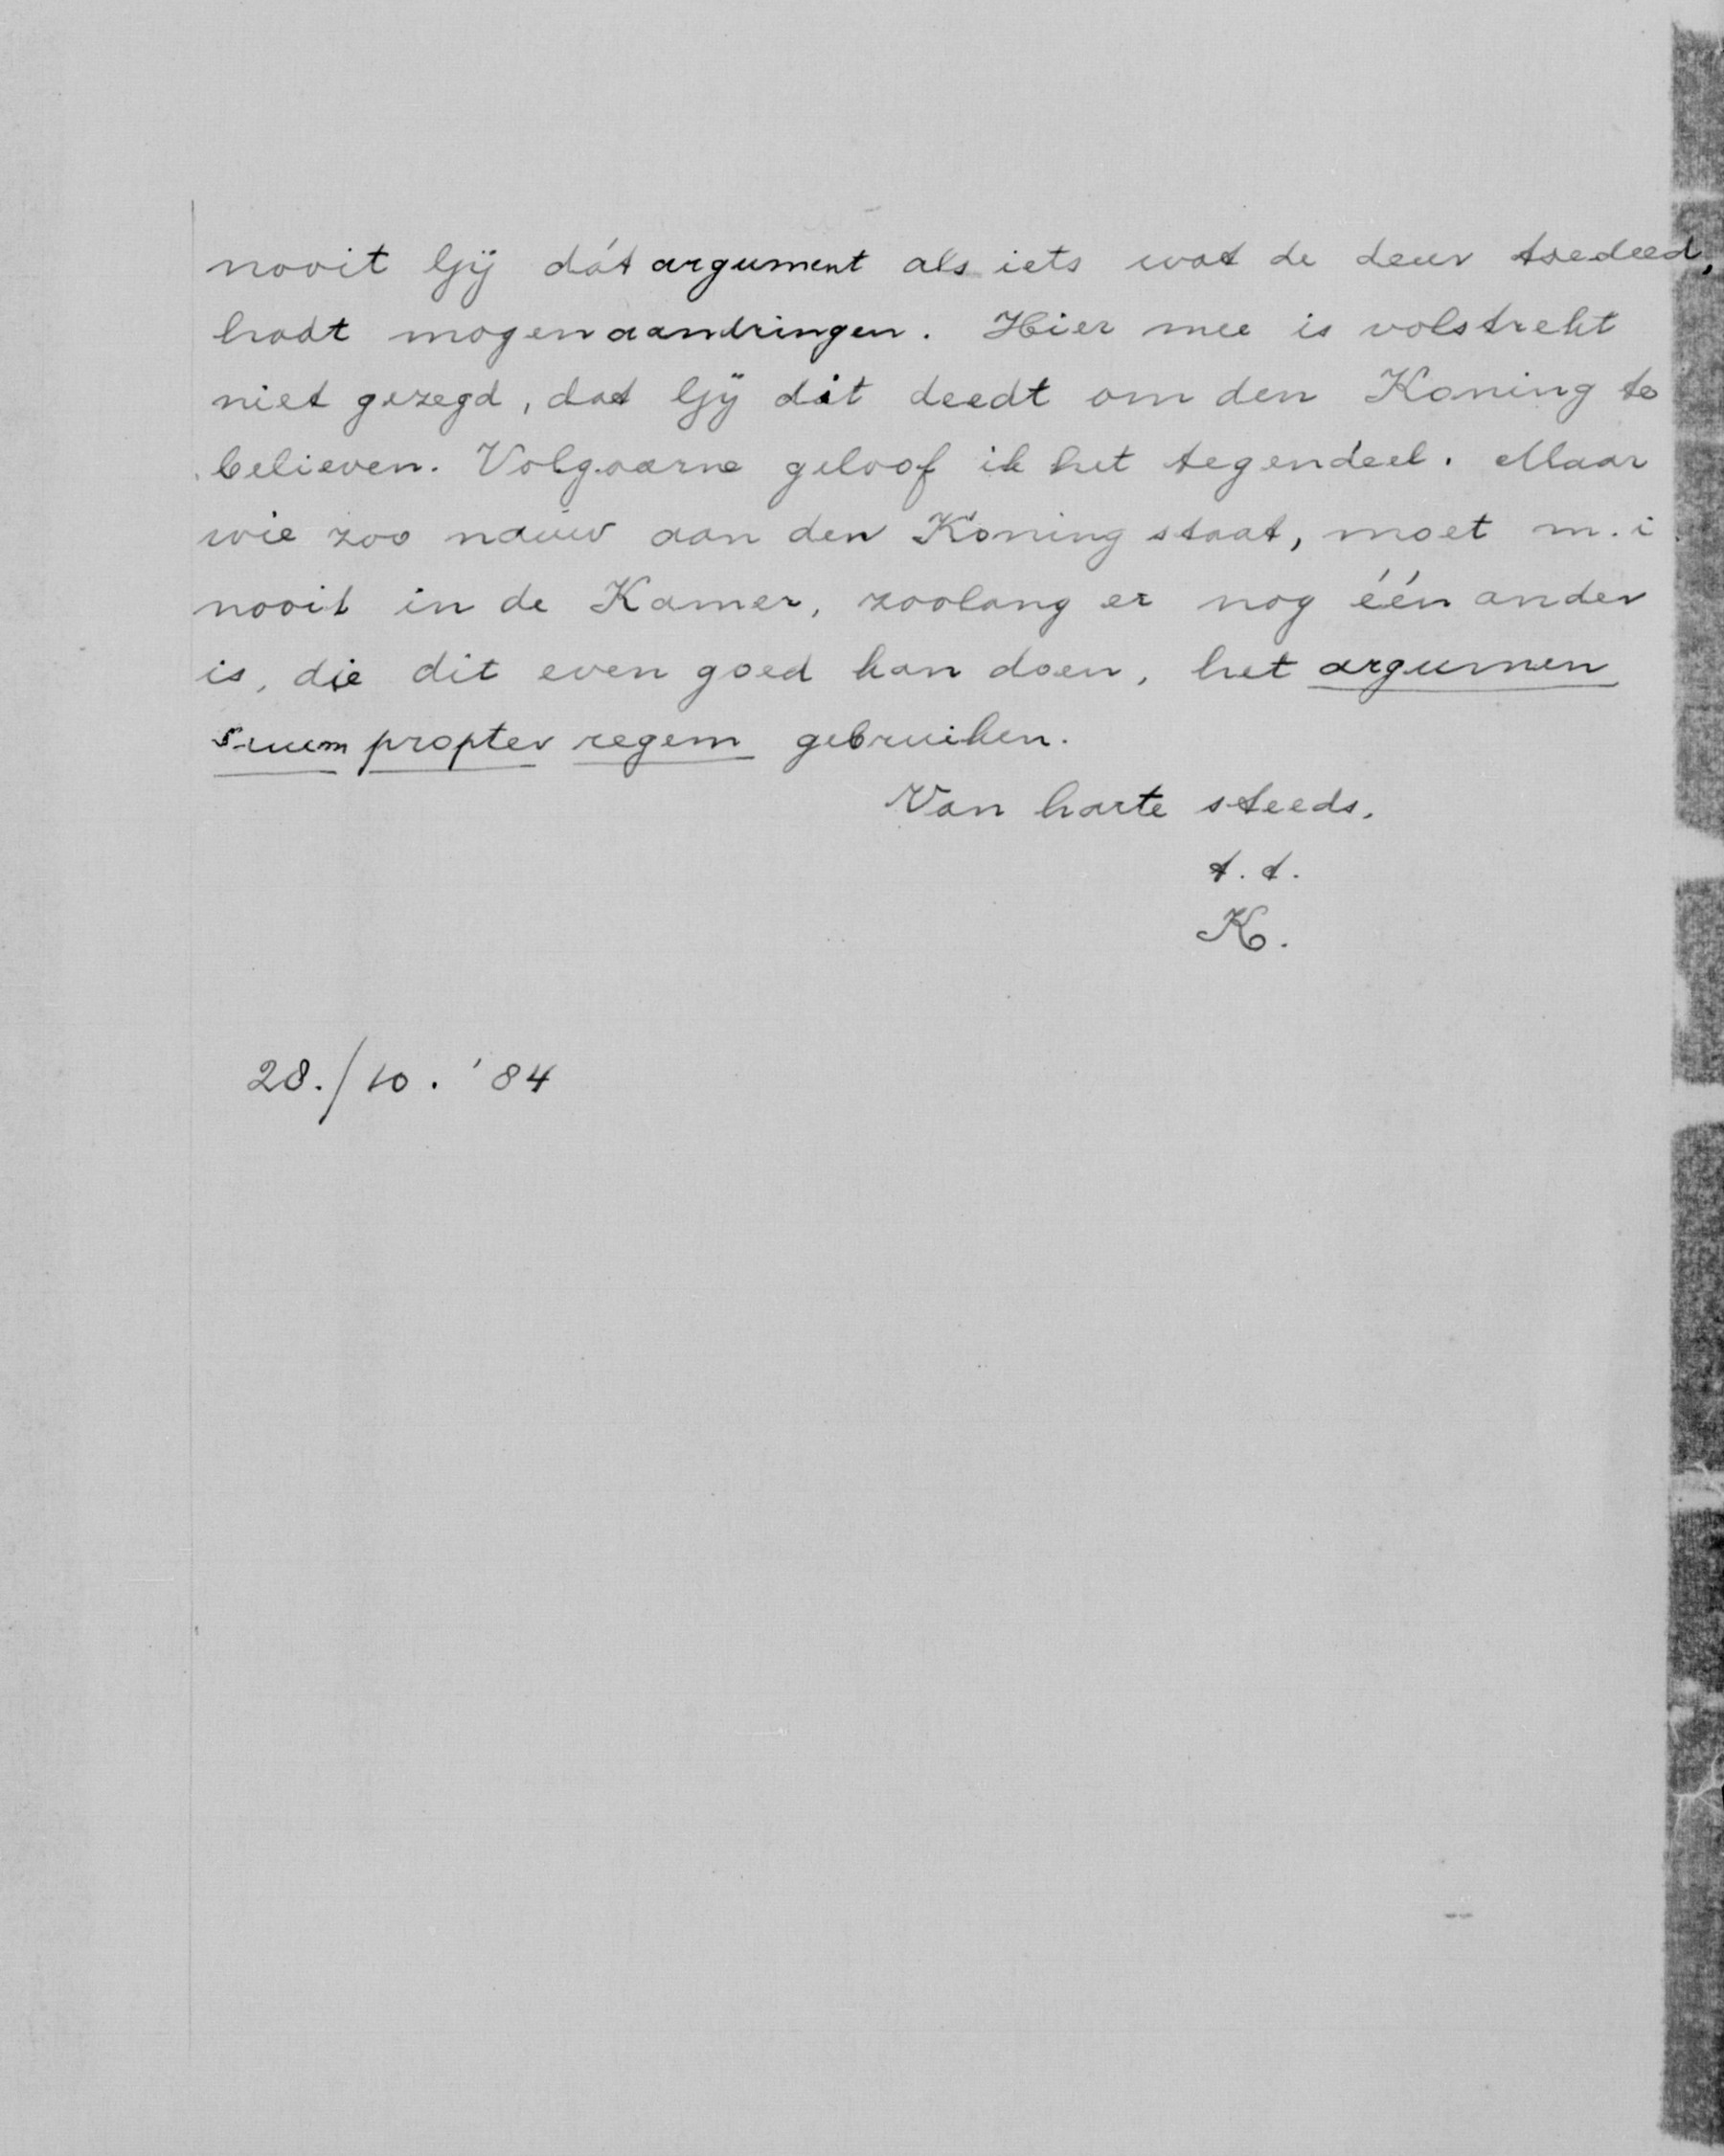 nooit Gij dát argument als iets wat de deur toedeed,
hadt mogen aandringen. Hier mee is volstrekt
niet gezegd, dat Gij dit deedt om den Koning te
believen. Volgaarne geloof ik het tegendeel. Maar
wie zoo nauw aan den Koning staat, moet m.i.
nooit in de Kamer, zoolang er nog één ander
is, die dit even goed kan doen, het argumen
propter regem gebruiken.
Van harte steeds,
t.t.
K.
28./10. '84